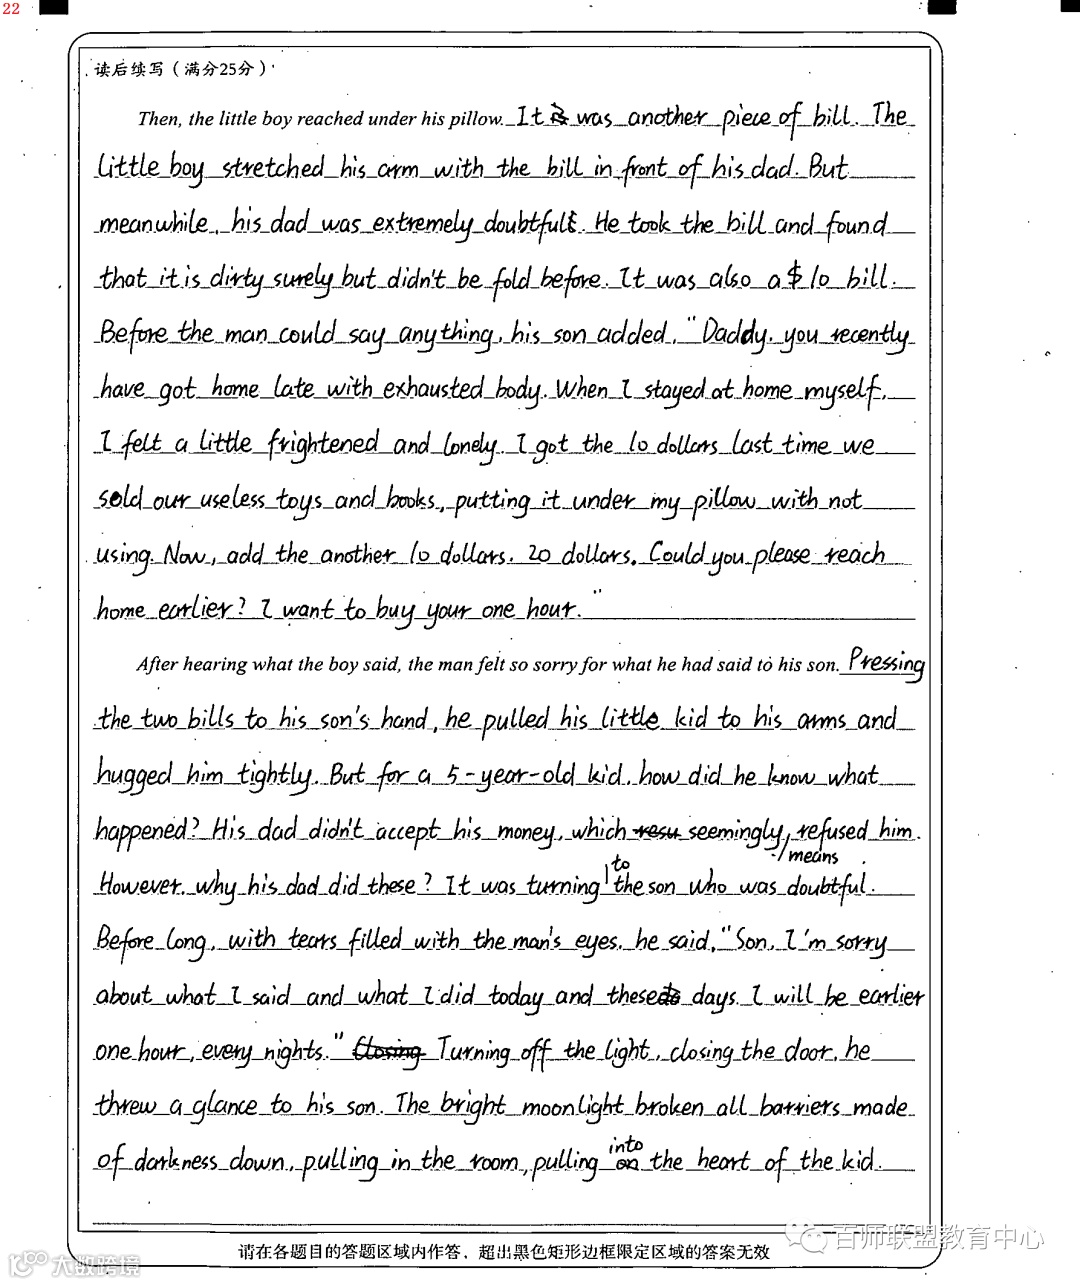 22
读后续写（满分25分）
Then, the little boy reached under his pillow. It was another piece of bill. The
little boy stretched his arm with the bill in front of his dad. But
meanwhile, his dad was extremely doubtful. He took the bill and found
that it is dirty surely but didn't be fold before. It was also a $10 bill.
Before the man could say anything, his son added, "Daddy, you recently
have got home late with exhausted body. When I stayed at home myself,
I felt a little frightened and lonely. I got the 10 dollars last time we
sold our useless toys and books, putting it under my pillow with not
using. Now, add the another 10 dollars. 20 dollars. Could you please reach
home earlier? I want to buy your one hour."
After hearing what the boy said, the man felt so sorry for what he had said to his son. Pressing
the two bills to his son's hand, he pulled his little kid to his arms and
hugged him tightly. But for a 5-year-old kid, how did he know what
happened? His dad didn't accept his money, which seemingly means refused him.
However, why his dad did these? It was turning to the son who was doubtful.
Before long, with tears filled with the man's eyes, he said, "Son, I'm sorry
about what I said and what I did today and these days. I will be earlier
one hour, every nights." Turning off the light, closing the door, he
threw a glance to his son. The bright moonlight broken all barriers made
of darkness down, pulling in the room, pulling into the heart of the kid.
请在各题目的答题区域内作答，超出黑色矩形边框限定区域的答案无效
百师联盟教育中心
大数跨境